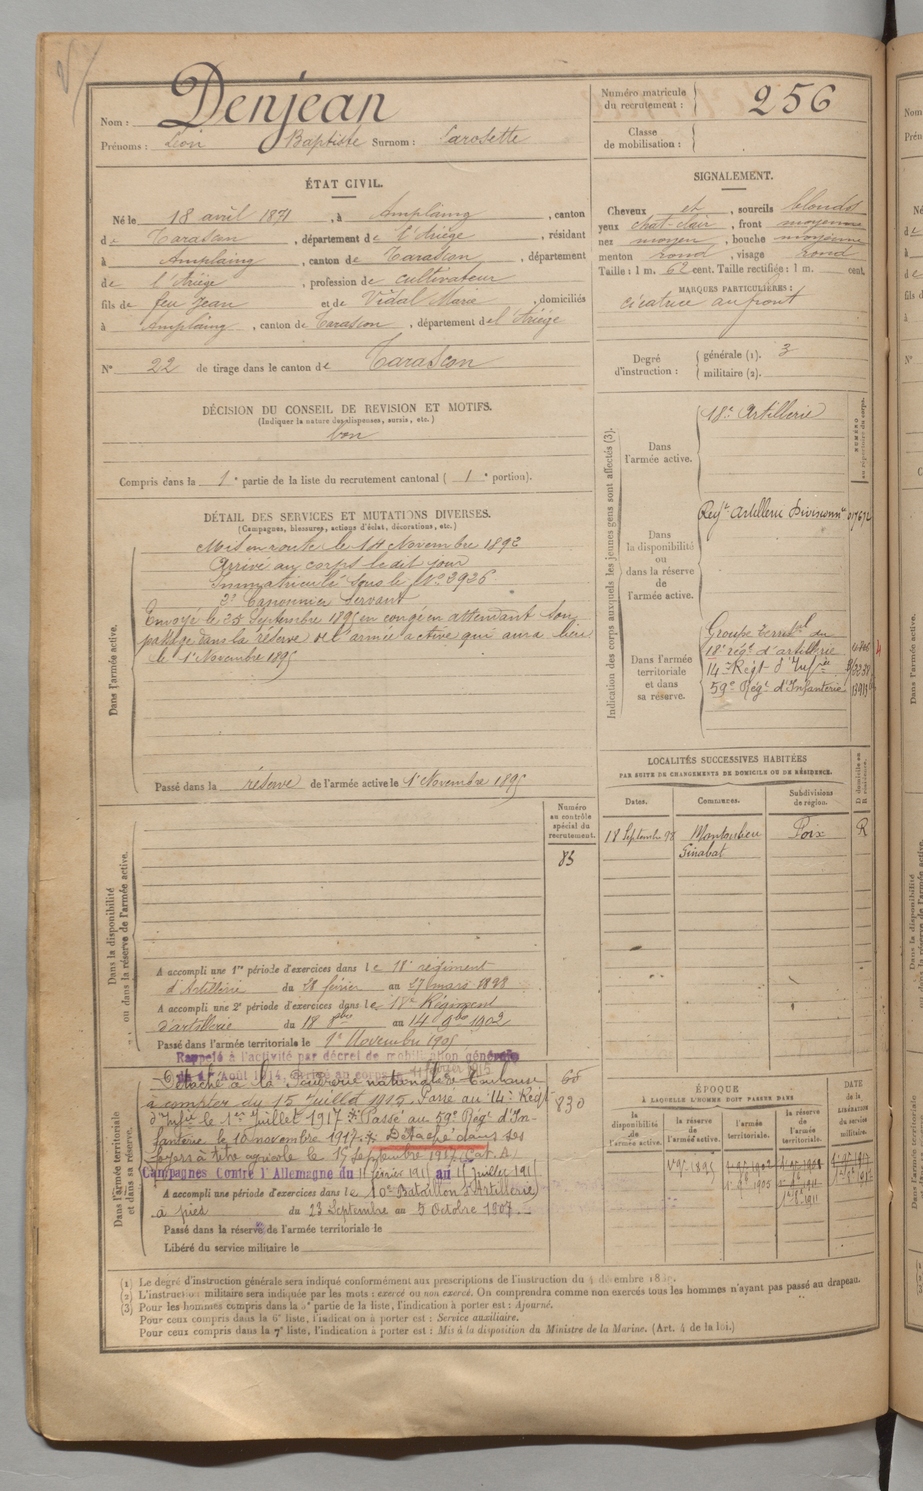 Nom : Denjean
Prénoms : Léon Baptiste Surnom : Carosette
ÉTAT CIVIL.
Né le 18 avril 1871, à Amplaing, canton
de Tarascon, département de l'Ariège, résidant
à Amplaing, canton de Tarascon, département
de l'Ariège, profession de cultivateur
fils de feu Jean et de Vidal Marie, domiciliés
à Amplaing, canton de Tarascon, département de l'Ariège
N° 22 de tirage dans le canton de Tarascon
DÉCISION DU CONSEIL DE REVISION ET MOTIFS.
(Indiquer la nature des dispenses, sursis, etc.)
bon
Compris dans la 1e partie de la liste du recrutement cantonal (1e portion).
DÉTAIL DES SERVICES ET MUTATIONS DIVERSES.
(Campagnes, blessures, actions d'éclat, décorations, etc.)
Dans l'armée active.
Mis en route le 14 Novembre 1892
Arrivé au corps le dit jour
Immatriculé sous le N° 3936
2e Canonnier servant
Envoyé le 25 Septembre 1895 en congé en attendant son
passage dans la réserve de l'armée active qui aura lieu
le 1er Novembre 1895
Passé dans la réserve de l'armée active le 1er Novembre 1895
Dans la disponibilité
ou dans la réserve de l'armée active.
Numéro
au contrôle
spécial du
recrutement.
85
A accompli une 1re période d'exercices dans le 18e régiment
d'Artillerie du 28 février au 27 mars 1898
A accompli une 2e période d'exercices dans le 18e Régiment
d'artillerie du 18 8bre au 14 9bre 1902
Passé dans l'armée territoriale le 1er Novembre 1905
Rappelé à l'activité par décret de mobilisation générale
du 1er Août 1914. Arrivé au corps le 11 février 1915
Dans l'armée territoriale
et dans sa réserve.
Détaché à la Poudrerie nationale de Toulouse
à compter du 15 Juillet 1915. Passé au 14e Régt
d'Infie le 1er Juillet 1917. Passé au 59e Régt d'In-
fanterie le 10 novembre 1917. Détaché dans ses
foyers à titre agricole le 15 Septembre 1917 (Cat. A)
68
830
Campagnes Contre l'Allemagne du 11 février 1915 au 15 juillet 1915
A accompli une période d'exercices dans le 10e Bataillon d'Artillerie
à pied du 23 Septembre au 5 Octobre 1907.
Passé dans la réserve de l'armée territoriale le
Libéré du service militaire le
Numéro matricule
du recrutement : 256
Classe
de mobilisation :
SIGNALEMENT.
Cheveux et, sourcils blonds
yeux chat-clair, front moyenne
nez moyen, bouche moyenne
menton rond, visage rond
Taille : 1 m. 62 cent. Taille rectifiée : 1 m. cent.
MARQUES PARTICULIÈRES :
cicatrice au front
Degré
d'instruction :
générale (1). 3
militaire (2).
Indication des corps auxquels les jeunes gens sont affectés (3).
NUMÉRO
au répertoire du corps.
Dans
l'armée active.
18e Artillerie
Dans
la disponibilité
ou
dans la réserve
de
l'armée active.
Regt Artillerie Divisionn
Dans l'armée
territoriale
et dans
sa réserve.
Groupe territal du
18e régt d'artillerie
14e Régt d'Infie
59e Régt d'Infanterie
LOCALITÉS SUCCESSIVES HABITÉES
PAR SUITE DE CHANGEMENTS DE DOMICILE OU DE RÉSIDENCE.
Dates. Communes. Subdivisions de région. D domicile ou R résidence.
18 Septembre 98 Montoulieu Foix R
Ginabat
ÉPOQUE
À LAQUELLE L'HOMME DOIT PASSER DANS
la disponibilité de l'armée active.
la réserve de l'armée active.
l'armée territoriale.
la réserve de l'armée territoriale.
DATE DE LA LIBÉRATION du service militaire.
(1) Le degré d'instruction générale sera indiqué conformément aux prescriptions de l'instruction du 4 décembre
(2) L'instruction militaire sera indiquée par les mots : exercé ou non exercé. On comprendra comme non exercés tous les hommes n'ayant pas passé au drapeau.
(3) Pour les hommes compris dans la partie de la liste, l'indication à porter est : Ajourné.
Pour ceux compris dans la 6e liste, l'indication à porter est : Service auxiliaire.
Pour ceux compris dans la 7e liste, l'indication à porter est : Mis à la disposition du Ministre de la Marine. (Art. 4 de la loi.)